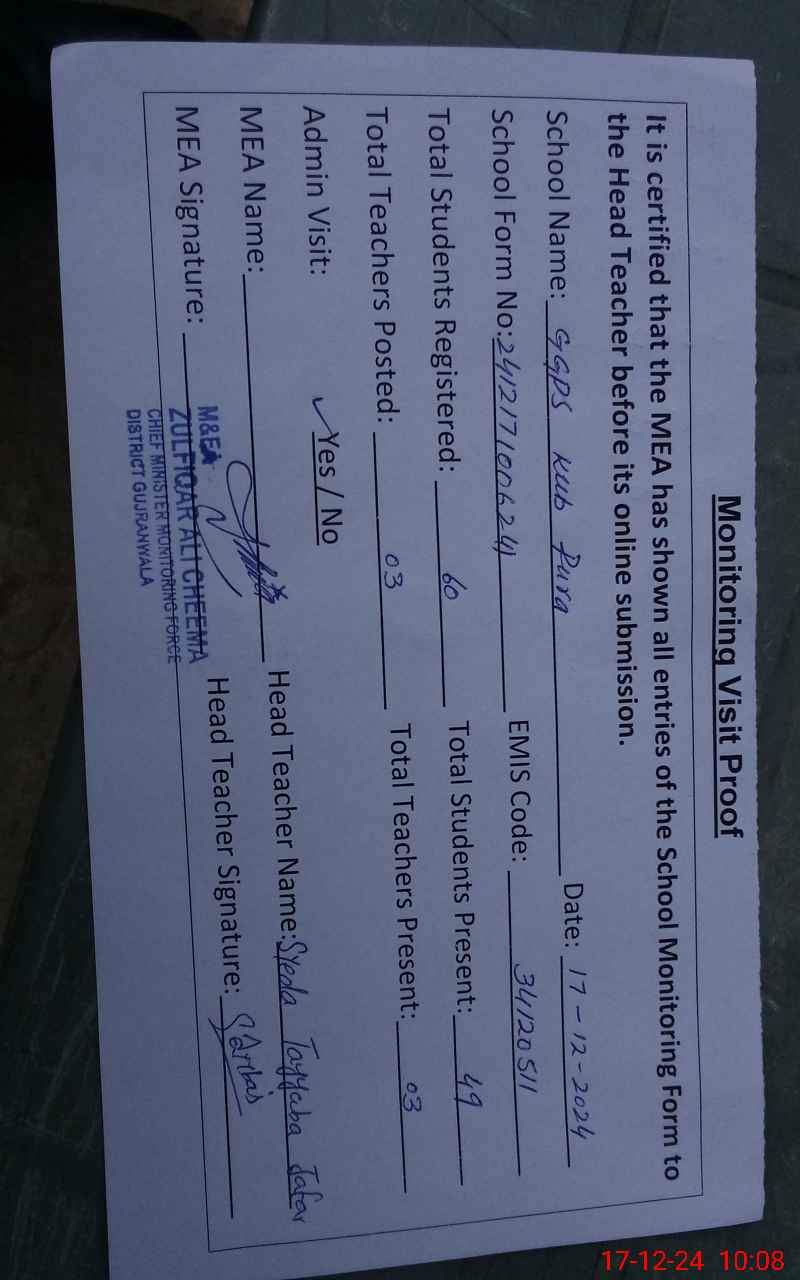 Monitoring Visit Proof
It is certified that the MEA has shown all entries of the School Monitoring Form to
the Head Teacher before its online submission.
School Name: GGPS Kub Pura Date: 17-12-2024
School Form No: 241217100624 EMIS Code: 34120511
Total Students Registered: 60 Total Students Present: 49
Total Teachers Posted: 03 Total Teachers Present: 03
Admin Visit: ✓Yes / No
MEA Name: Head Teacher Name: Syeda Tayyaba Jafar
MEA Signature: Head Teacher Signature:
M&EA
ZULFIQAR ALI CHEEMA
CHIEF MINISTER MONITORING FORCE
DISTRICT GUJRANWALA
17-12-24 10:08